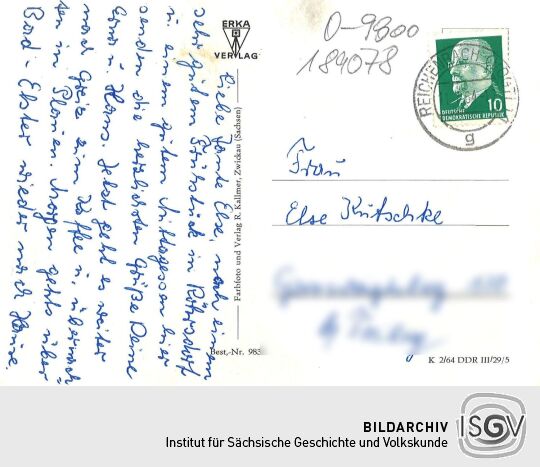 Liebe Tante Else, nach einem
sehr guten Frühstück in
u. einem guten Mittagessen hier
senden die herzlichsten Grüße Deine
u. Hans. Jetzt geht es weiter
nach Greiz zum Kaffee u. übernach-
ten in Plauen. Morgen gehts über
Bad-Elster wieder nach Hause.
ERKA
VERLAG
Farbfoto und Verlag R. Kallmer, Zwickau (Sachsen)
Best.-Nr. 983
O-9800
184078
REICHENBACH
g
10
DEUTSCHE
DEMOKRATISCHE REPUBLIK
Frau
Else Kutschke
K 2/64 DDR III/29/5
BILDARCHIV
Institut für Sächsische Geschichte und Volkskunde
ISGV